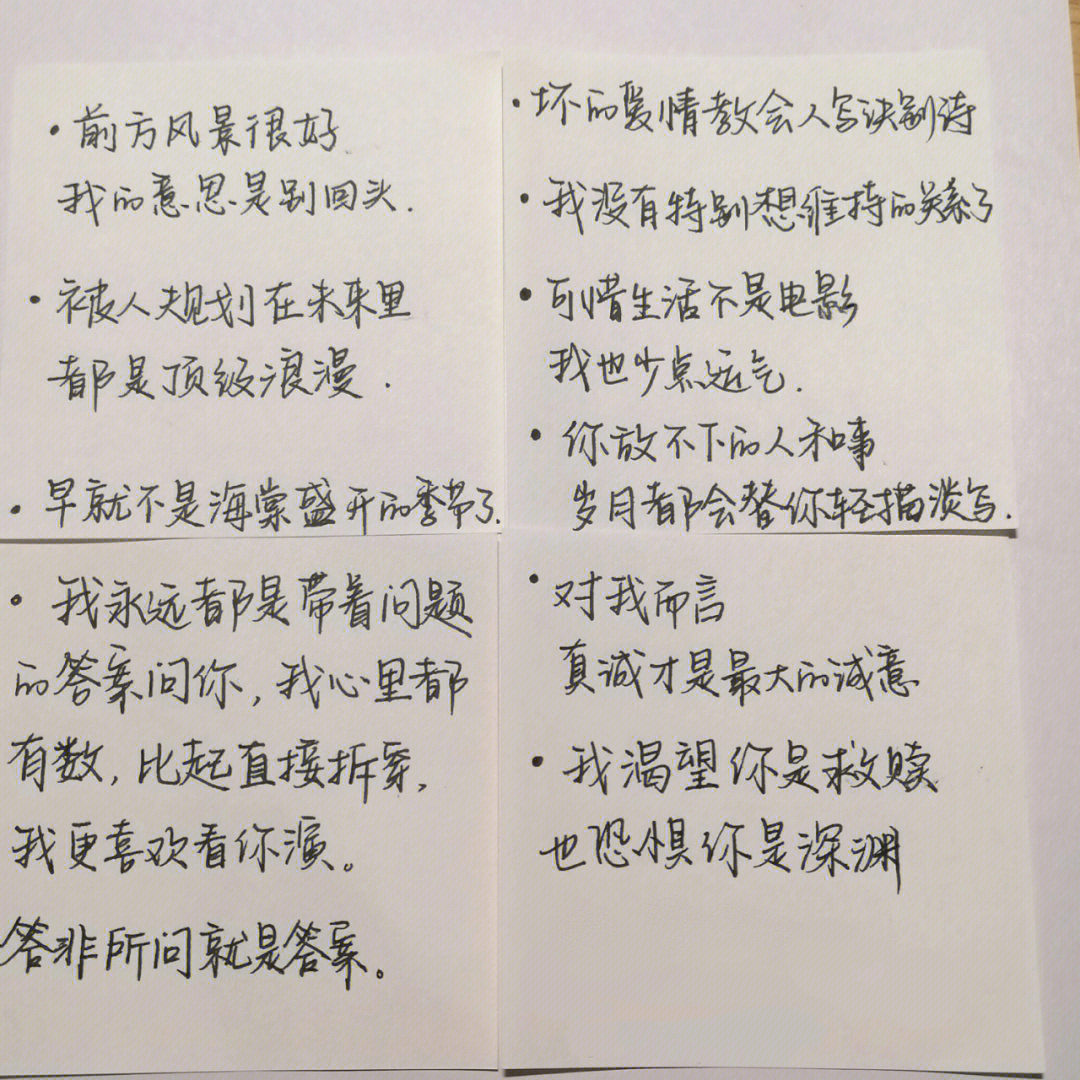 • 前方风景很好
我的意思是别回头.
• 被人规划在未来里
都是顶级浪漫.
• 早就不是海棠盛开的季节了.
• 坏的爱情教会人写诀别诗
• 我没有特别想维持的关系了
• 可惜生活不是电影
我也少点运气.
• 你放不下的人和事
岁月都会替你轻描淡写.
• 我永远都是带着问题
的答案问你,我心里都
有数,比起直接拆穿,
我更喜欢看你演。
答非所问就是答案。
• 对我而言
真诚才是最大的诚意
• 我渴望你是救赎
也恐惧你是深渊